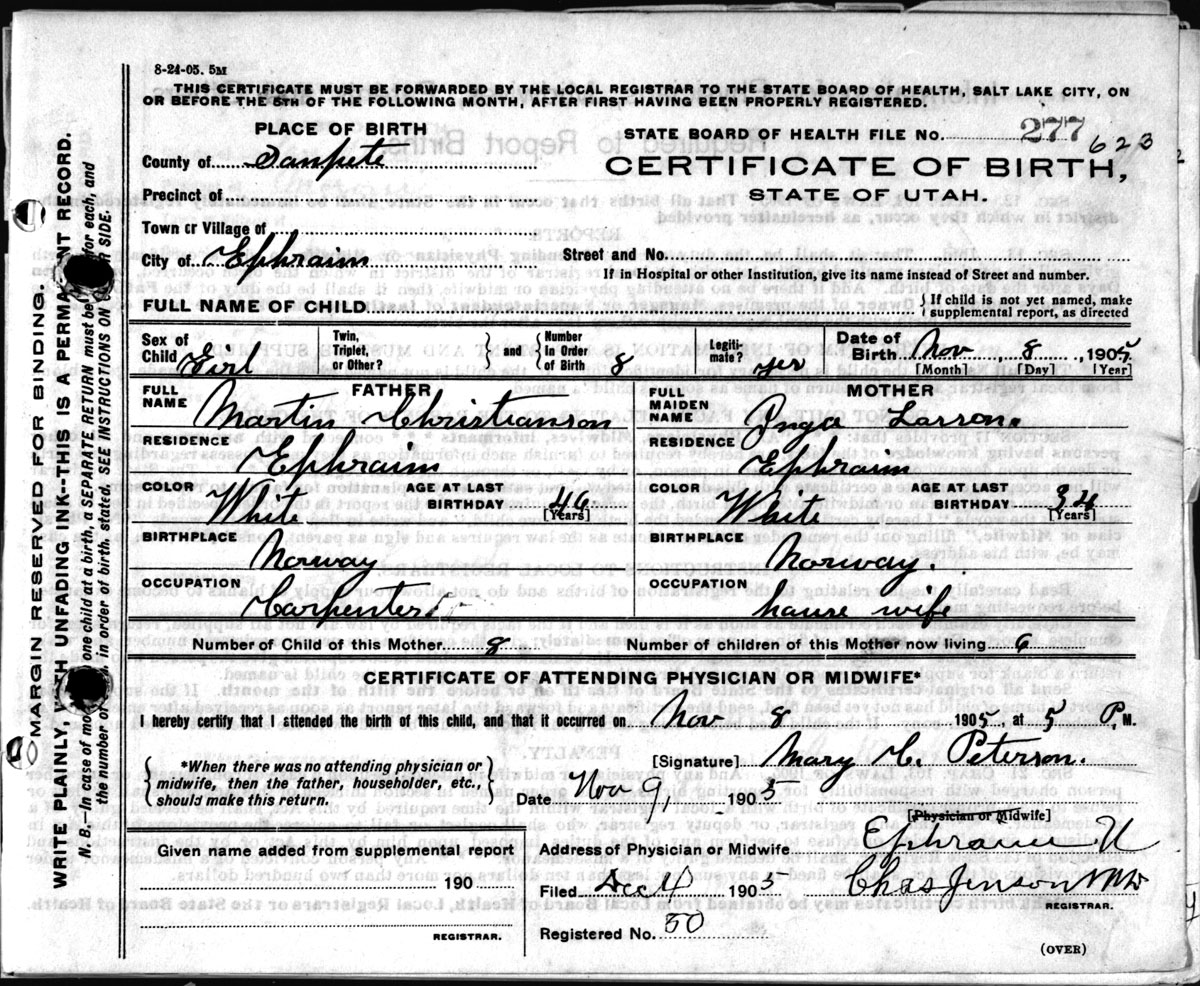 8-24-05. 5M
THIS CERTIFICATE MUST BE FORWARDED BY THE LOCAL REGISTRAR TO THE STATE BOARD OF HEALTH, SALT LAKE CITY, ON
OR BEFORE THE 5TH OF THE FOLLOWING MONTH, AFTER FIRST HAVING BEEN PROPERLY REGISTERED.
PLACE OF BIRTH
STATE BOARD OF HEALTH FILE No. 277 623
County of Sanpete
CERTIFICATE OF BIRTH,
Precinct of
STATE OF UTAH.
Town or Village of
City of Ephraim
Street and No.
If in Hospital or other Institution, give its name instead of Street and number.
FULL NAME OF CHILD
{ If child is not yet named, make supplemental report, as directed
Sex of Child Girl Twin, Triplet, or Other? } and { Number In Order of Birth 8 Legiti-mate? yes Date of Birth Nov 8 1905
[Month] [Day] [Year]
FATHER
MOTHER
FULL NAME Martin Christianson
FULL MAIDEN NAME Inga Larson.
RESIDENCE Ephraim
RESIDENCE Ephraim
COLOR White AGE AT LAST BIRTHDAY 46 [Years]
COLOR White AGE AT LAST BIRTHDAY 34 [Years]
BIRTHPLACE Norway
BIRTHPLACE Norway.
OCCUPATION Carpenter
OCCUPATION house wife
Number of Child of this Mother 8 Number of children of this Mother now living 6
CERTIFICATE OF ATTENDING PHYSICIAN OR MIDWIFE*
I hereby certify that I attended the birth of this child, and that it occurred on Nov 8 1905, at 5 P, M.
*When there was no attending physician or
midwife, then the father, householder, etc.,
should make this return.
[Signature] Mary C. Peterson.
Date Nov 9, 1905
[Physician or Midwife]
Given name added from supplemental report
190
REGISTRAR.
Address of Physician or Midwife Ephraim U
Filed Dec 4 1905 Chas Jenson
REGISTRAR.
Registered No. 50
(OVER)
MARGIN RESERVED FOR BINDING.
WRITE PLAINLY, WITH UNFADING INK--THIS IS A PERMANENT RECORD.
N. B.—In case of more than one child at a birth, a SEPARATE RETURN must be made for each, and
the number of each, in order of birth, stated. SEE INSTRUCTIONS ON OTHER SIDE.